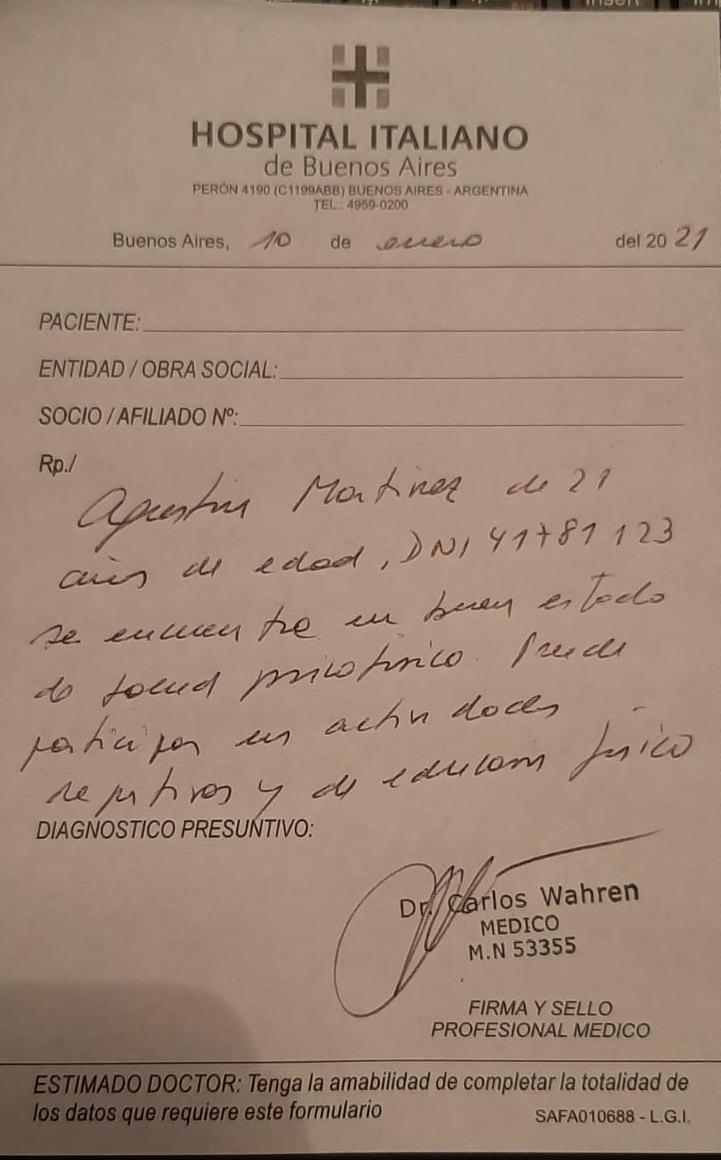 HOSPITAL ITALIANO
de Buenos Aires
PERÓN 4190 (C1199ABB) BUENOS AIRES - ARGENTINA
TEL.: 4959-0200
Buenos Aires, 10 de enero del 2021
PACIENTE:
ENTIDAD / OBRA SOCIAL:
SOCIO / AFILIADO Nº:
Rp./
Agustin Martinez de 21
años de edad, DNI 41781123
se encuentra en buen estado
de salud psicofísico. Puede
participar en actividades
deportivas y de educación físico
DIAGNOSTICO PRESUNTIVO:
Dr. Carlos Wahren
MEDICO
M.N 53355
FIRMA Y SELLO
PROFESIONAL MEDICO
ESTIMADO DOCTOR: Tenga la amabilidad de completar la totalidad de
los datos que requiere este formulario
SAFA010688 - L.G.I.